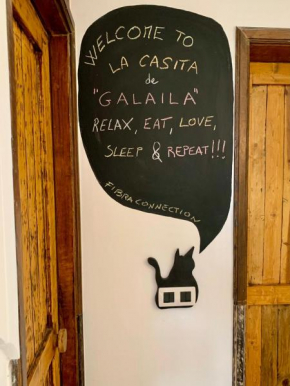 WELCOME TO
LA CASITA
de
"GALAILA"
RELAX, EAT, LOVE,
SLEEP & REPEAT!!!
FIBRA CONNECTION